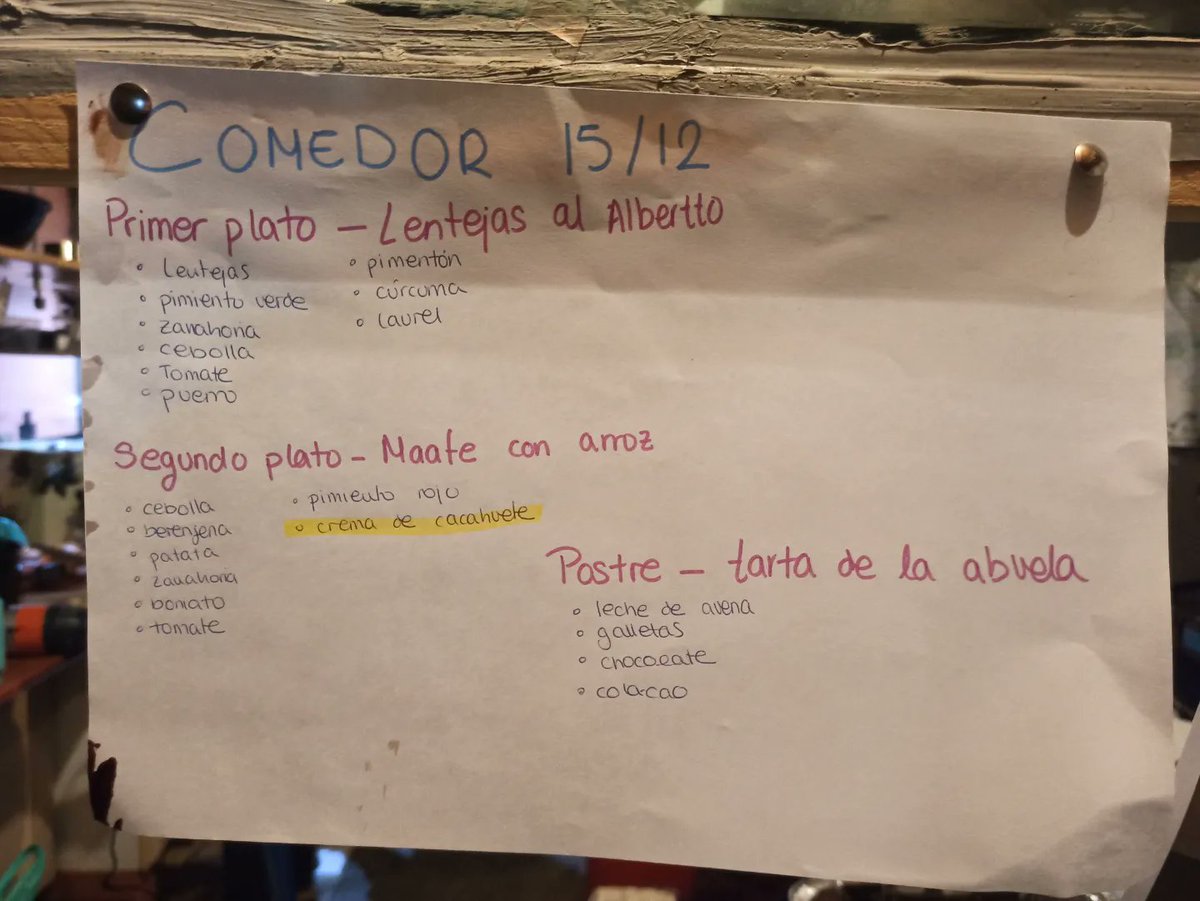 COMEDOR 15/12
Primer plato – Lentejas al Albertto
◦ Lentejas
◦ pimiento verde
◦ zanahoria
◦ cebolla
◦ Tomate
◦ puerro
◦ pimentón
◦ cúrcuma
◦ laurel
Segundo plato – Maafe con arroz
◦ cebolla
◦ berenjena
◦ patata
◦ zanahoria
◦ boniato
◦ tomate
◦ pimiento rojo
◦ crema de cacahuete
Postre – tarta de la abuela
◦ leche de avena
◦ galletas
◦ chocolate
◦ colacao